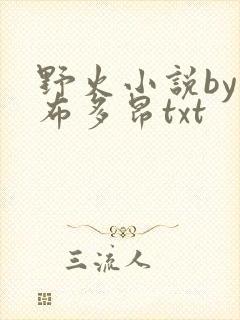 野火小説by
布多昂txt
三流人